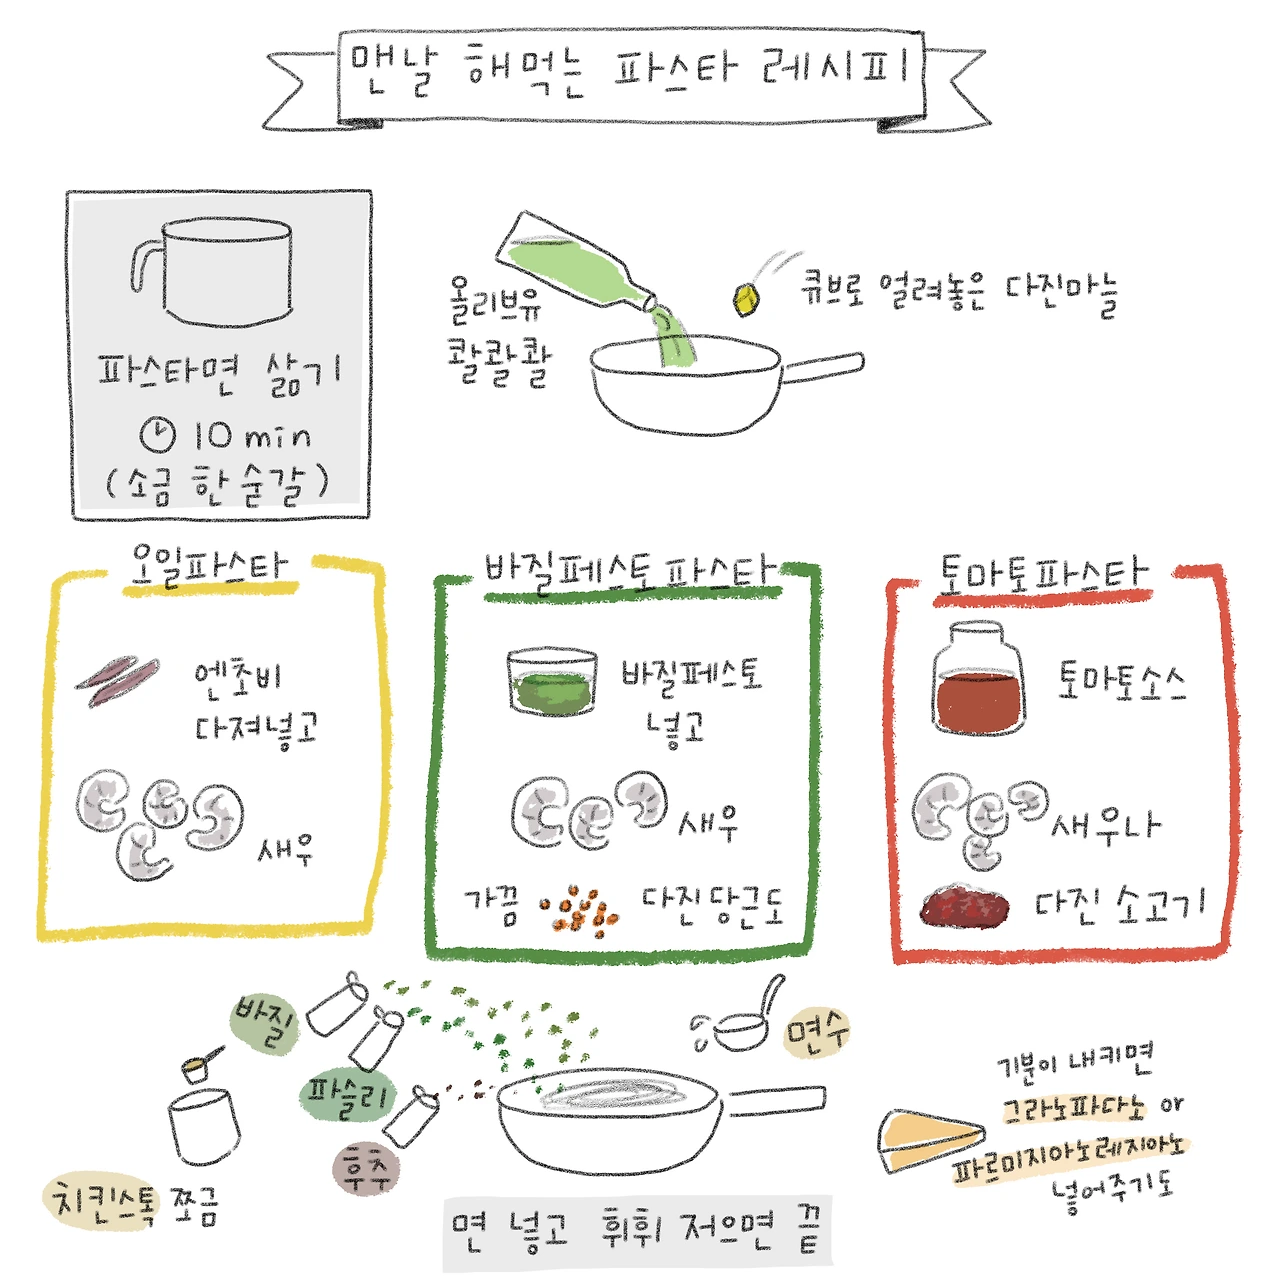 맨날 해먹는 파스타 레시피
파스타면 삶기
10 min
(소금 한 숟갈)
올리브유
콸콸콸
큐브로 얼려놓은 다진마늘
오일파스타
엔초비
다져넣고
새우
바질페스토 파스타
바질페스토
넣고
새우
가끔 다진당근도
토마토파스타
토마토소스
새우나
다진 소고기
바질
파슬리
후추
치킨스톡 쪼금
면수
면 넣고 휘휘 저으면 끝
기분이 내키면
그라노파다노 or
파르미지아노레지아노
넣어주기도